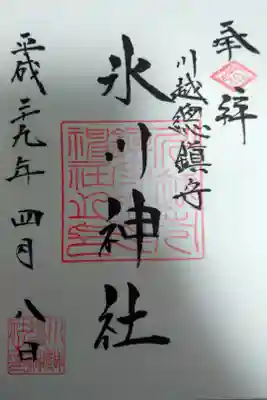 奉拝
川越總鎮守
氷川神社
平成二十九年四月八日